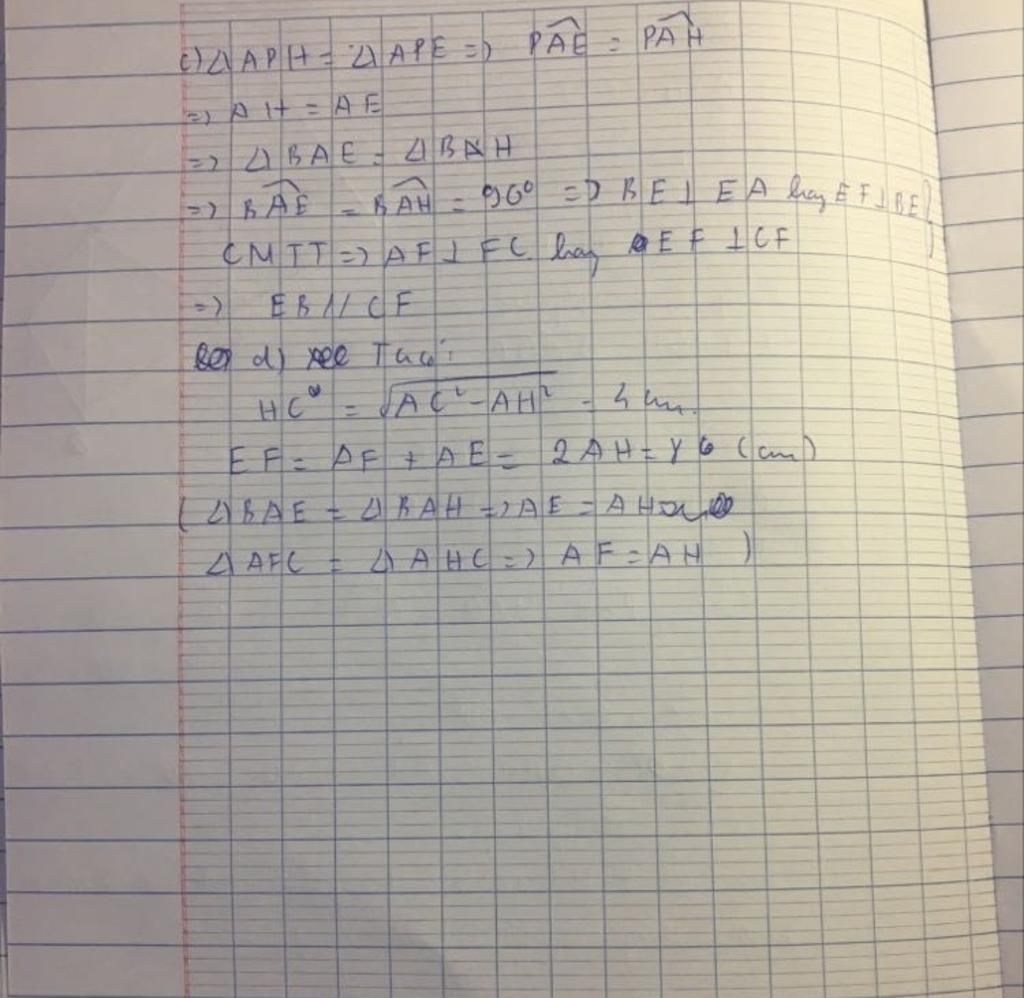 c) △APH = △APE => PÂE = PÂH
=> AH = AE
=> △BAE = △BAH
=> BÂE = BÂH = 90° => BE ⊥ EA hay EF ⊥ BE
CMTT => AF ⊥ FC hay EF ⊥ CF
=> EB // CF
d) Ta có:
HC = √AC² - AH² = 4 cm.
EF = AF + AE = 2AH = 6 (cm)
( △BAE = △BAH => AE = AH
△AFC = △AHC => AF = AH )